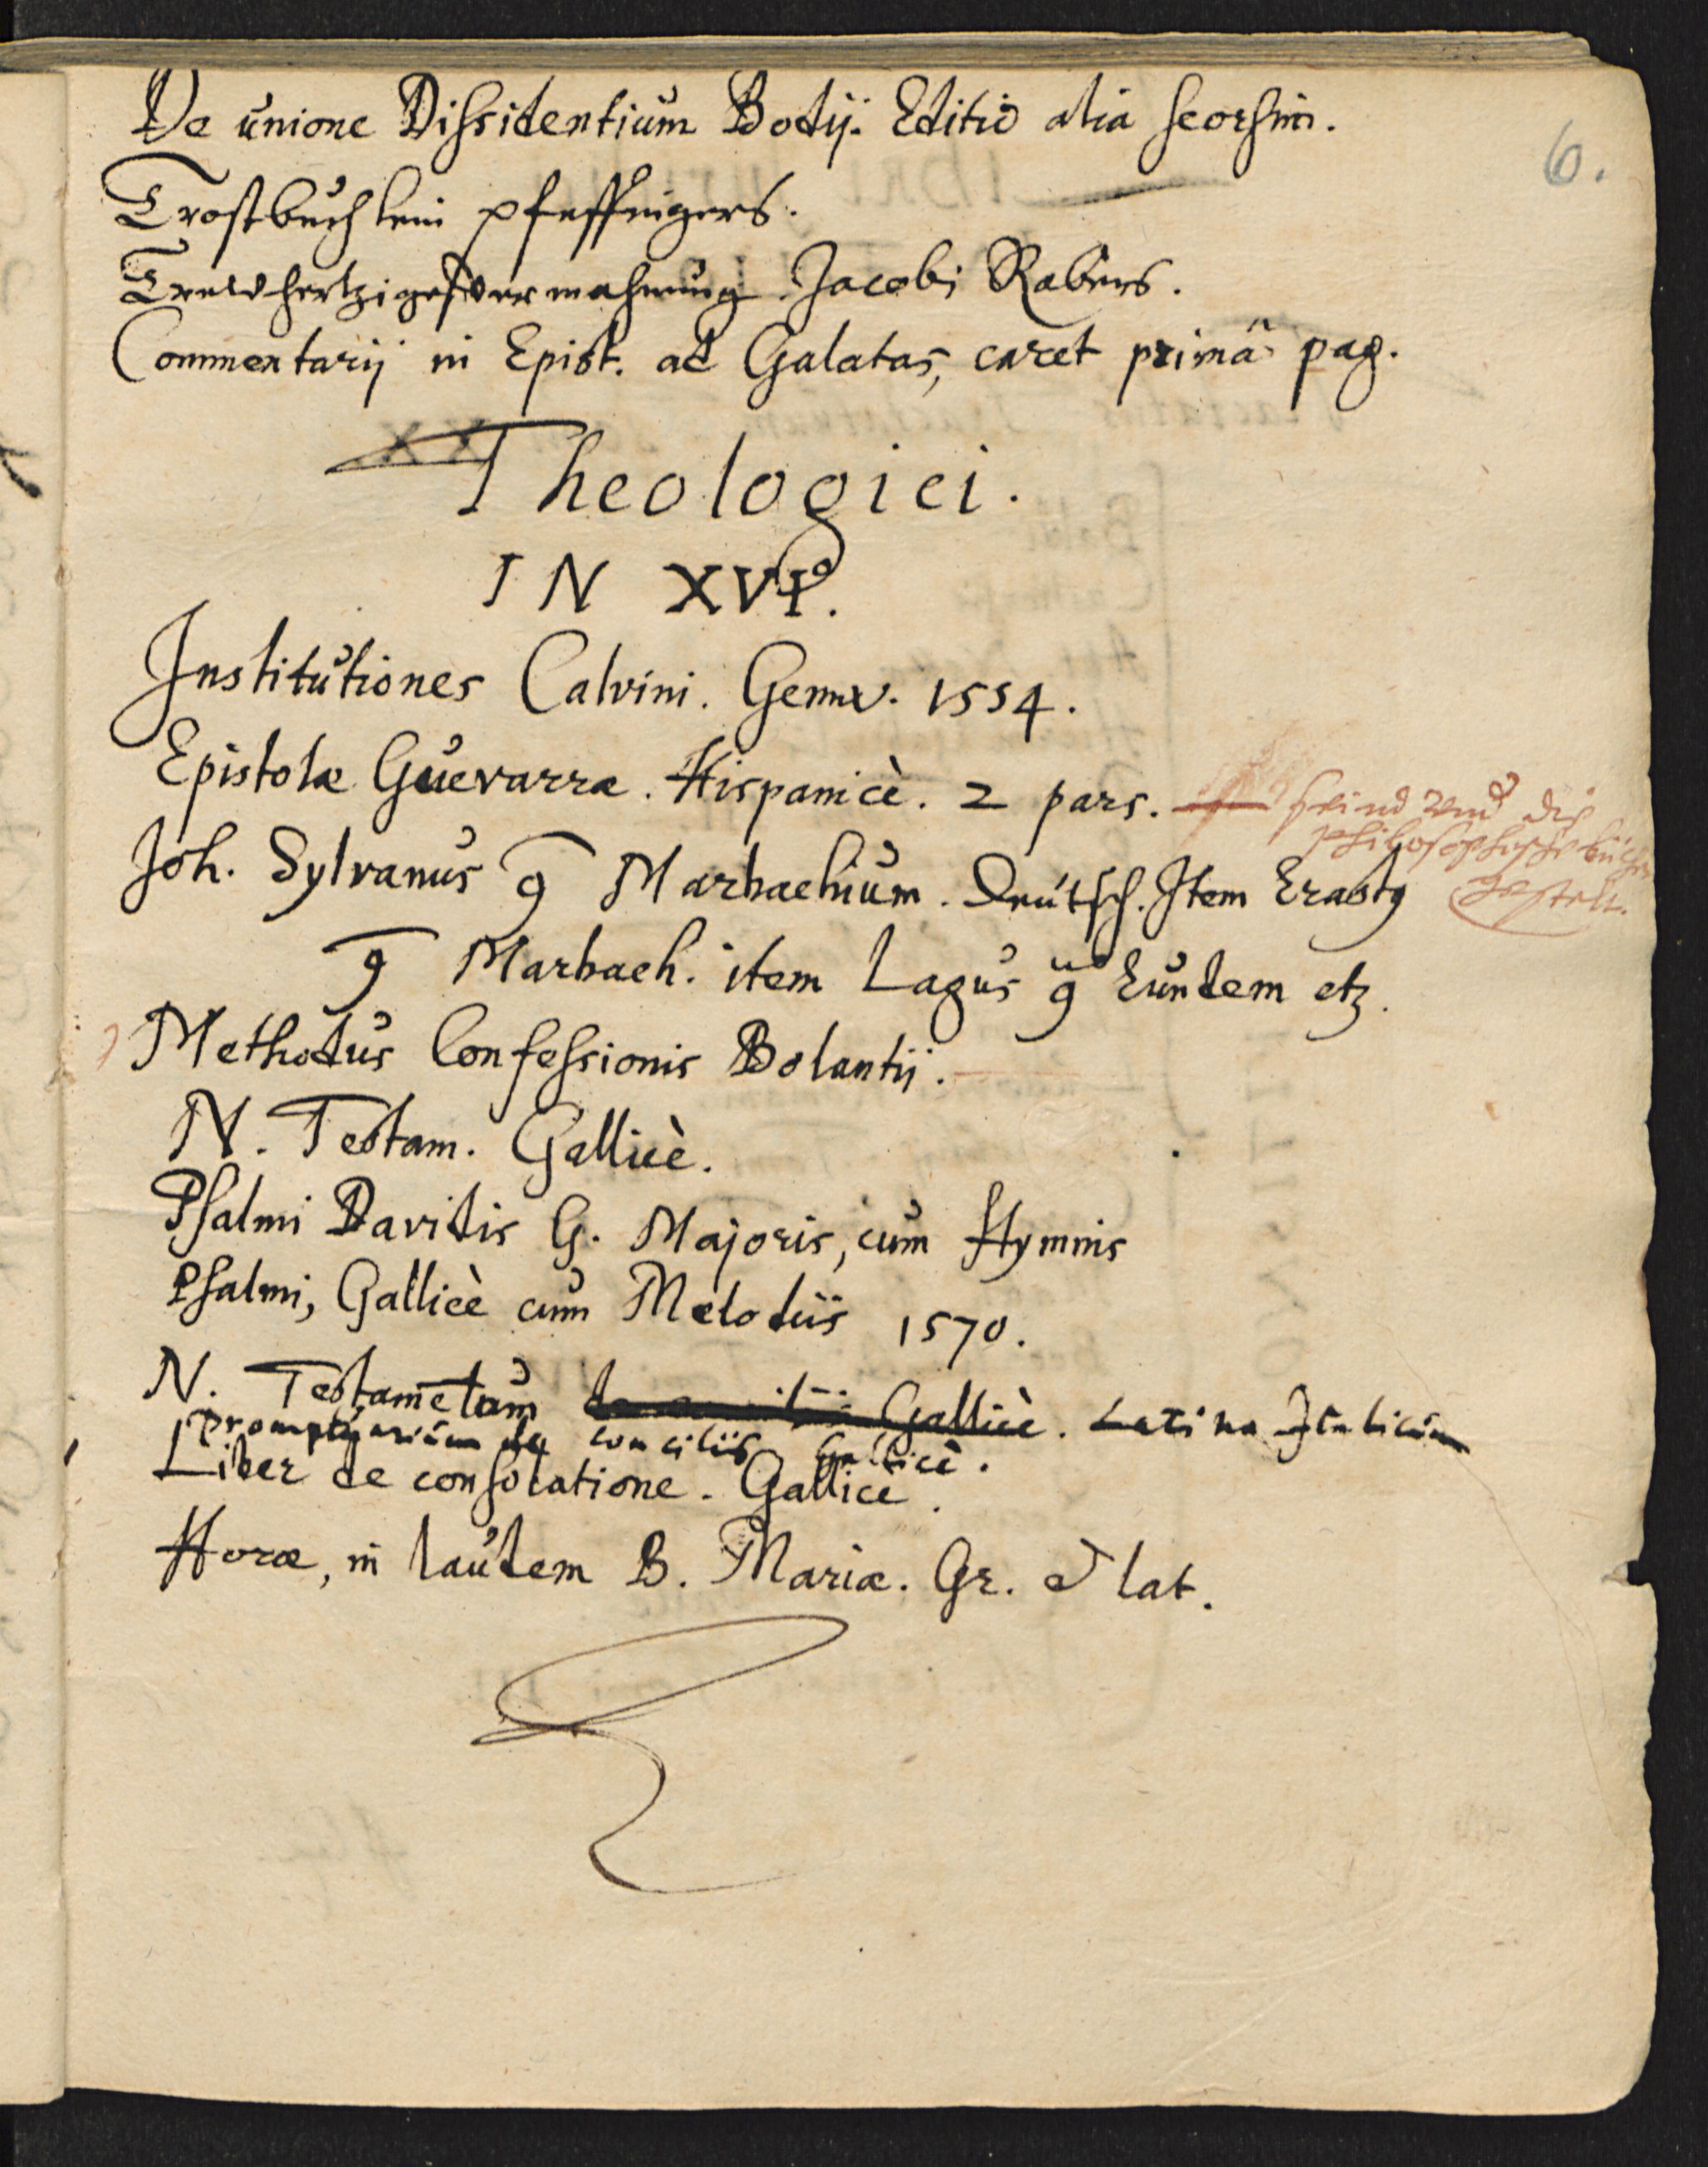 De unione Dissidentium Bodij. Editio alia seorsim.
6.
Trostbuchlein Pfeffingers.
Trewhertzige vermahnung Jacobi Rabers.
Commentarij in Epist. ad Galatas, caret primâ pag.
Theologici.
IN XVIº.
Institutiones Calvini. Genev. 1554.
Epistolæ Guevarræ. Hispanicè. 2 pars.
seind und die
philosophische bücher
gestelt.
Joh. Sylvanus Marbachium. Deutsch. Item Erastq
Marbach. item Lagus Eundem etz.
Methodus Confessionis Bolantij.
N. Testam. Gallicè.
Psalmi Davidis G. Majoris, cum Hymnis
Psalmi, Gallicè cum Melodiis 1570.
N. Testamētum Gallicè. Latino Italicum
Promptuarium de conciliis Gallicè.
Liber de consolatione. Gallicè.
Horæ, in laudem B. Mariæ. Gr. & lat.